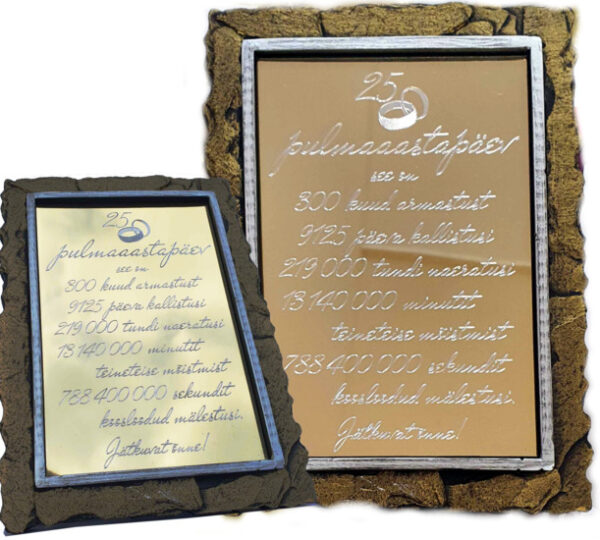 25
pulmaaastapäev
see on
300 kuud armastust
9125 päeva kallistusi
219 000 tundi naeratusi
13 140 000 minutit
teineteise mõistmist
788 400 000 sekundit
koosloodud mälestusi.
Jätkuvat õnne!
25
pulmaaastapäev
see on
300 kuud armastust
9125 päeva kallistusi
219 000 tundi naeratusi
13 140 000 minutit
teineteise mõistmist
788 400 000 sekundit
koosloodud mälestusi.
Jätkuvat õnne!